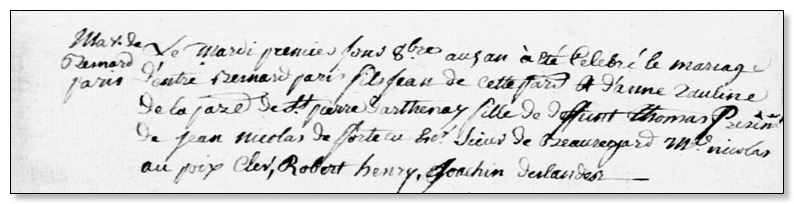 Mar. de
Bernard
paris
Le mardi premier jour 8bre audan à été Celebré le mariage
d'entre Bernard paris fils Jean de cette par. et d'anne Pauline
de la parr. de St pierre d'arthenay fille de deffunt Thomas Présence
de jean nicolas de Sieur de Beauregard Mr. nicolas
au poix Cler, Robert henry, Joachin deslandes